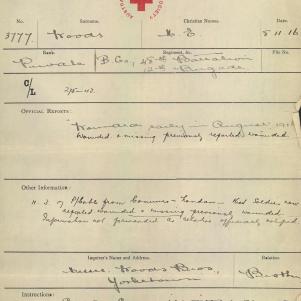 SOCIETY
No. Surname. Christian Names. Date.
3777. Woods M. E. 5.11.16
Rank. Regiment, &c. File No.
Private B. Co., 48th Battalion
12th Brigade
C/L 215-42
OFFICIAL REPORTS:
Wounded early in August
Wounded & missing previously reported wounded.
Other Information:
from London - that Soldier now
reported wounded & missing previously wounded.
Information not forwarded as relatives officially notified.
Inquirer's Name and Address. Relation
Messrs. Woods Bros, Brother
Yorketown
Instructions: